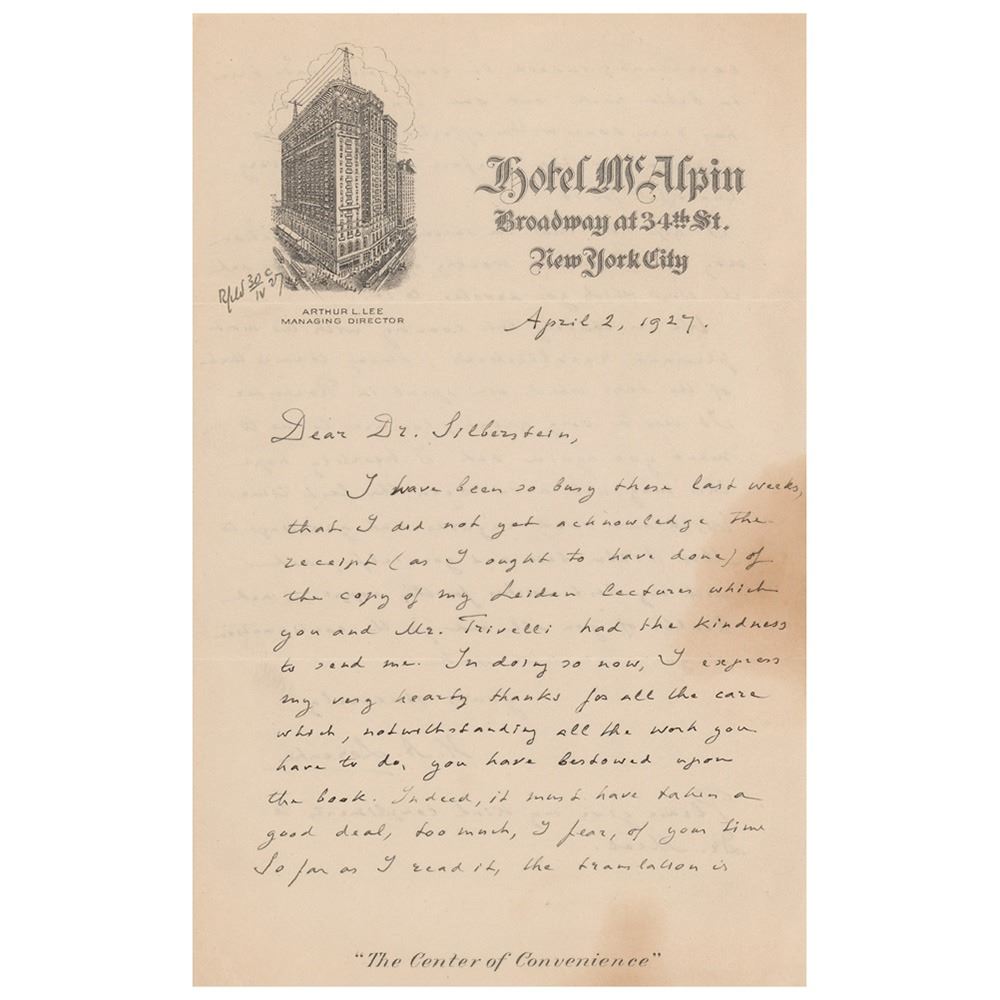 Hotel McAlpin
Broadway at 34th St.
New York City
30
IV 27
ARTHUR L. LEE
MANAGING DIRECTOR
April 2, 1927.
Dear Dr. Silberstein,
I have been so busy these last weeks,
that I did not yet acknowledge the
receipt (as I ought to have done) of
the copy of my Leiden lectures which
you and Mr. Trivelli had the kindness
to send me. In doing so now, I express
my very hearty thanks for all the care
which, notwithstanding all the work you
have to do, you have bestowed upon
the book. Indeed, it must have taken a
good deal, too much, I fear, of your time
So far as I read it, the translation is
"The Center of Convenience"